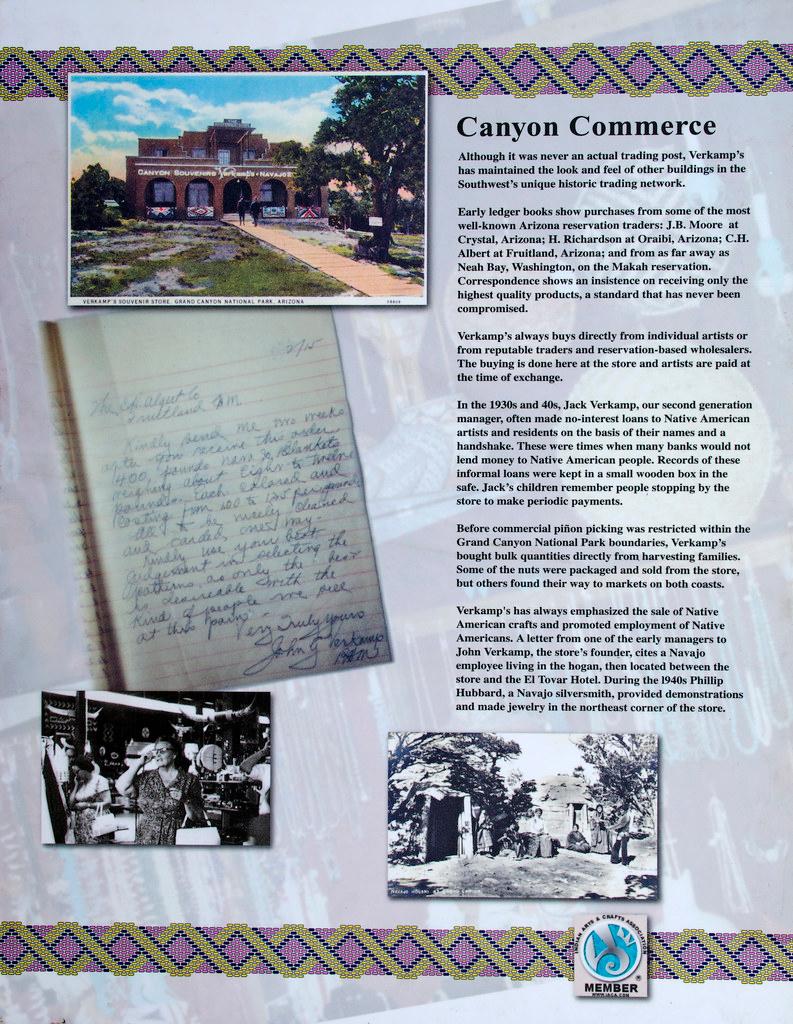 CANYON SOUVENIRS Verkamp's NAVAJO
VERKAMP'S SOUVENIR STORE, GRAND CANYON NATIONAL PARK, ARIZONA
Canyon Commerce
Although it was never an actual trading post, Verkamp's
has maintained the look and feel of other buildings in the
Southwest's unique historic trading network.
Early ledger books show purchases from some of the most
well-known Arizona reservation traders: J.B. Moore at
Crystal, Arizona; H. Richardson at Oraibi, Arizona; C.H.
Albert at Fruitland, Arizona; and from as far away as
Neah Bay, Washington, on the Makah reservation.
Correspondence shows an insistence on receiving only the
highest quality products, a standard that has never been
compromised.
Verkamp's always buys directly from individual artists or
from reputable traders and reservation-based wholesalers.
The buying is done here at the store and artists are paid at
the time of exchange.
In the 1930s and 40s, Jack Verkamp, our second generation
manager, often made no-interest loans to Native American
artists and residents on the basis of their names and a
handshake. These were times when many banks would not
lend money to Native American people. Records of these
informal loans were kept in a small wooden box in the
safe. Jack's children remember people stopping by the
store to make periodic payments.
Before commercial piñon picking was restricted within the
Grand Canyon National Park boundaries, Verkamp's
bought bulk quantities directly from harvesting families.
Some of the nuts were packaged and sold from the store,
but others found their way to markets on both coasts.
Verkamp's has always emphasized the sale of Native
American crafts and promoted employment of Native
Americans. A letter from one of the early managers to
John Verkamp, the store's founder, cites a Navajo
employee living in the hogan, then located between the
store and the El Tovar Hotel. During the 1940s Phillip
Hubbard, a Navajo silversmith, provided demonstrations
and made jewelry in the northeast corner of the store.
Fruitland N.M.
Kindly send me two weeks
after you receive this order
400 pounds Navajo Blankets
weighing about Eight to Twelve
pounds Each Colored and
Costing from 100 to 125 per pound
all to be nicely cleaned
and carded, ones may
Kindly use your best
judgement in selecting the
patterns as only the best
is desireable with the
Kind of people we see
at this point
Very Truly yours
John G Verkamp
NAVAJO HOGANS AT GRAND CANYON
INDIAN ARTS & CRAFTS ASSOCIATION
MEMBER
WWW.IACA.COM